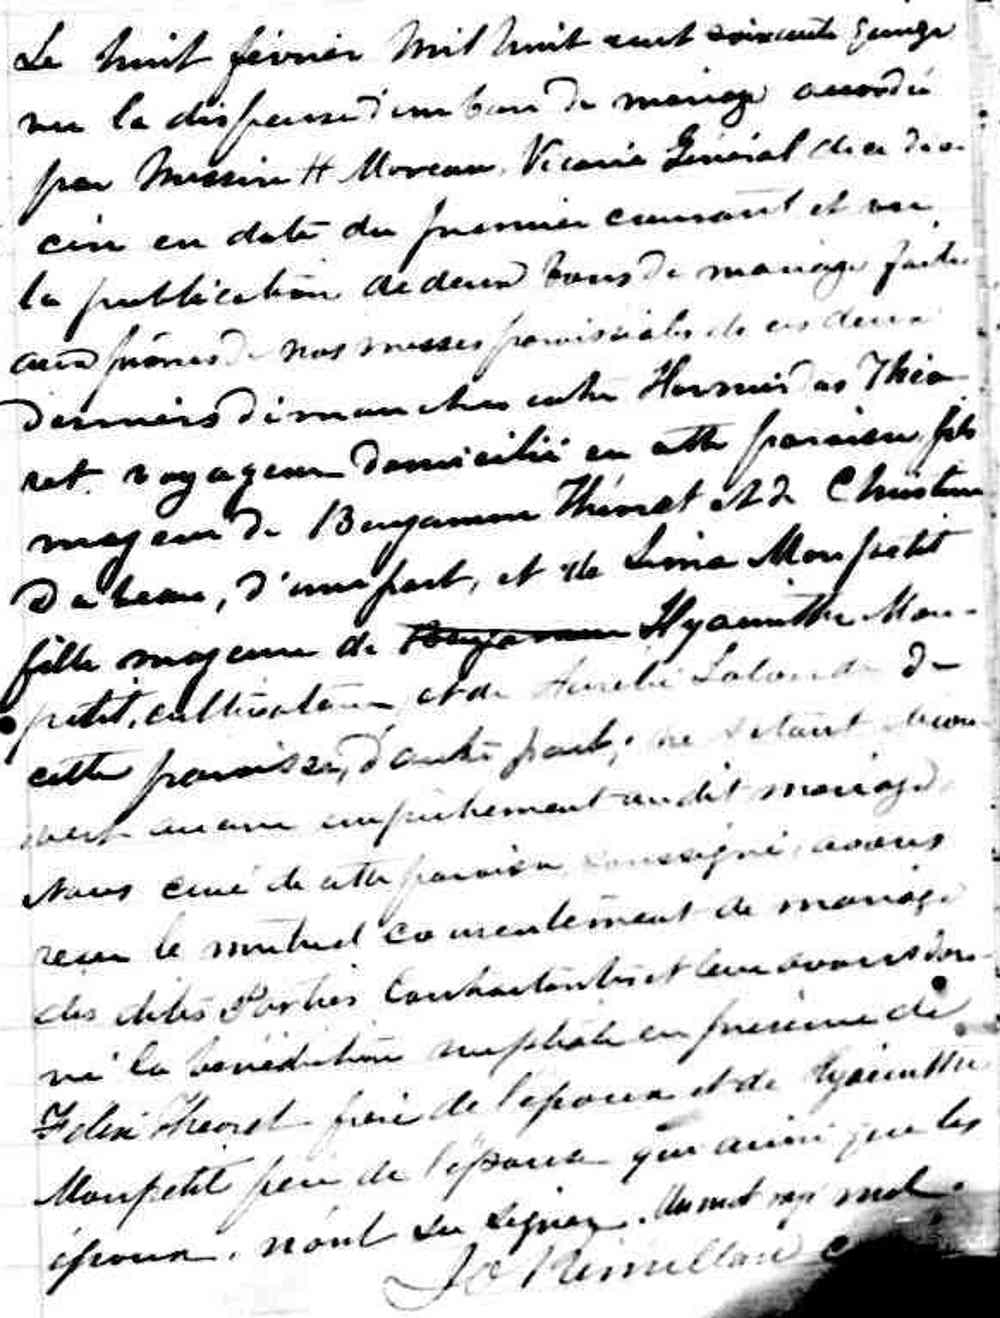 Le huit février mil huit cent soixante quinze
vu la dispense d'un ban de mariage accordée
par Messire H Moreau, Vicaire Général de ce dio-
cèse en date du premier courant et vu
la publication de deux bans de mariage faite
aux prônes de nos messes paroissiales de ces deux
derniers dimanches entre Hormisdas Théo-
ret voyageur domicilié en cette paroisse fils
majeur de Benjamin Théoret et de Christine
d'une part, et de Lima Monpetit
fille majeure de Benjamin Hyacinthe Mon-
petit, cultivateur et de Aurelie Lalonde de
cette paroisse, d'autre part; ne s'étant décou-
vert aucun empêchement au dit mariage
Nous curé de cette paroisse soussigné, avons
reçu le mutuel consentement de mariage
des dites Parties Contractantes et leur avons don-
né la bénédiction nuptiale en présence de
Felix Theoret frère de l'époux et de Hyacinthe
Monpetit père de l'épouse qui ainsi que les
époux, n'ont su signer. Un mot rayé nul.